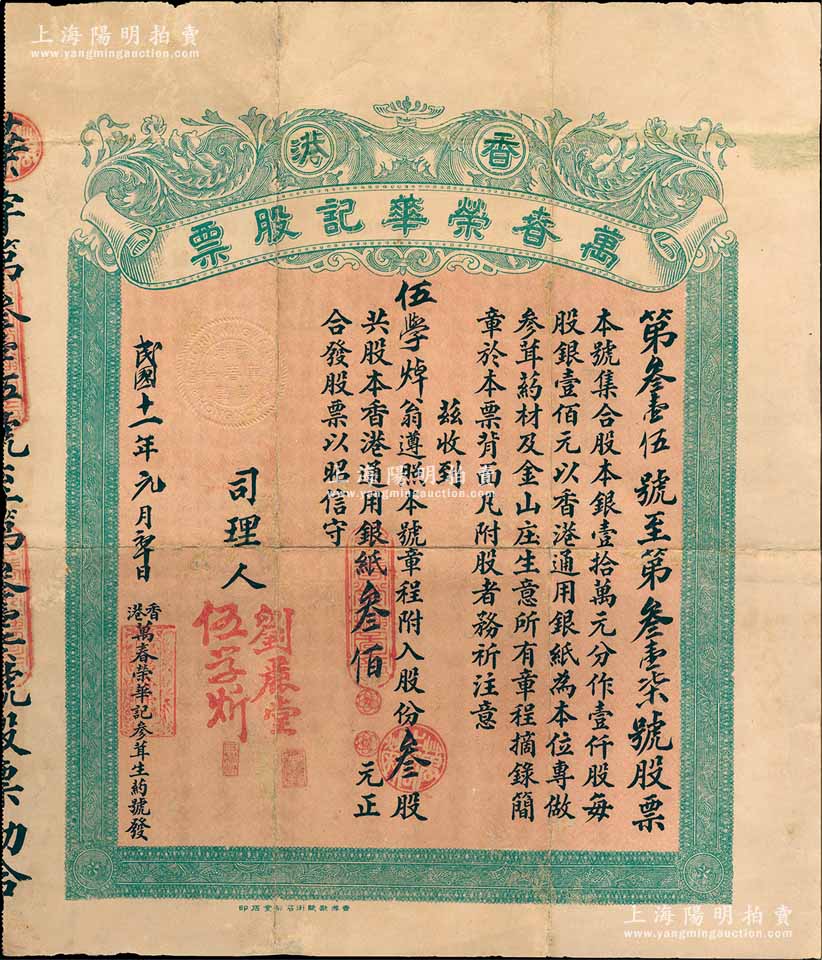 上海陽明拍賣
www.yangmingauction.com
香港
萬春榮華記股票
第叁壹伍號至第叁壹柒號股票
本號集合股本銀壹拾萬元分作壹仟股每
股銀壹佰元以香港通用銀紙為本位專做
參茸葯材及金山庄生意所有章程摘錄簡
章於本票背面凡附股者務祈注意
茲收到
伍學焯翁遵照本號章程附入股份叁股
共股本香港通用銀紙叁佰元正
合發股票以昭信守
司理人
劉麗堂
伍學炘
民國十一年元月初日
香港萬春榮華記參茸生葯號發
榮字第叁壹伍號至第叁壹柒號股票勘合
上海陽明拍賣
www.yangmingauction.com
上海陽明拍賣
www.yangmingauction.com